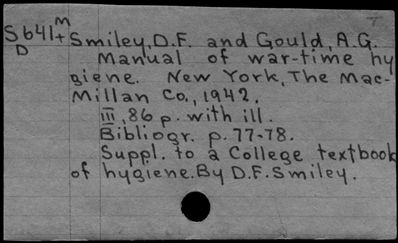 M
S641+ Smiley, D.F. and Gould, A.G.
D
Manual of war-time hy
giene. New York, The Mac-
Millan Co., 1942.
III, 86 p. with ill.
Bibliogr. p. 77-78.
Suppl. to a College textbook
of hygiene. By D.F. Smiley.